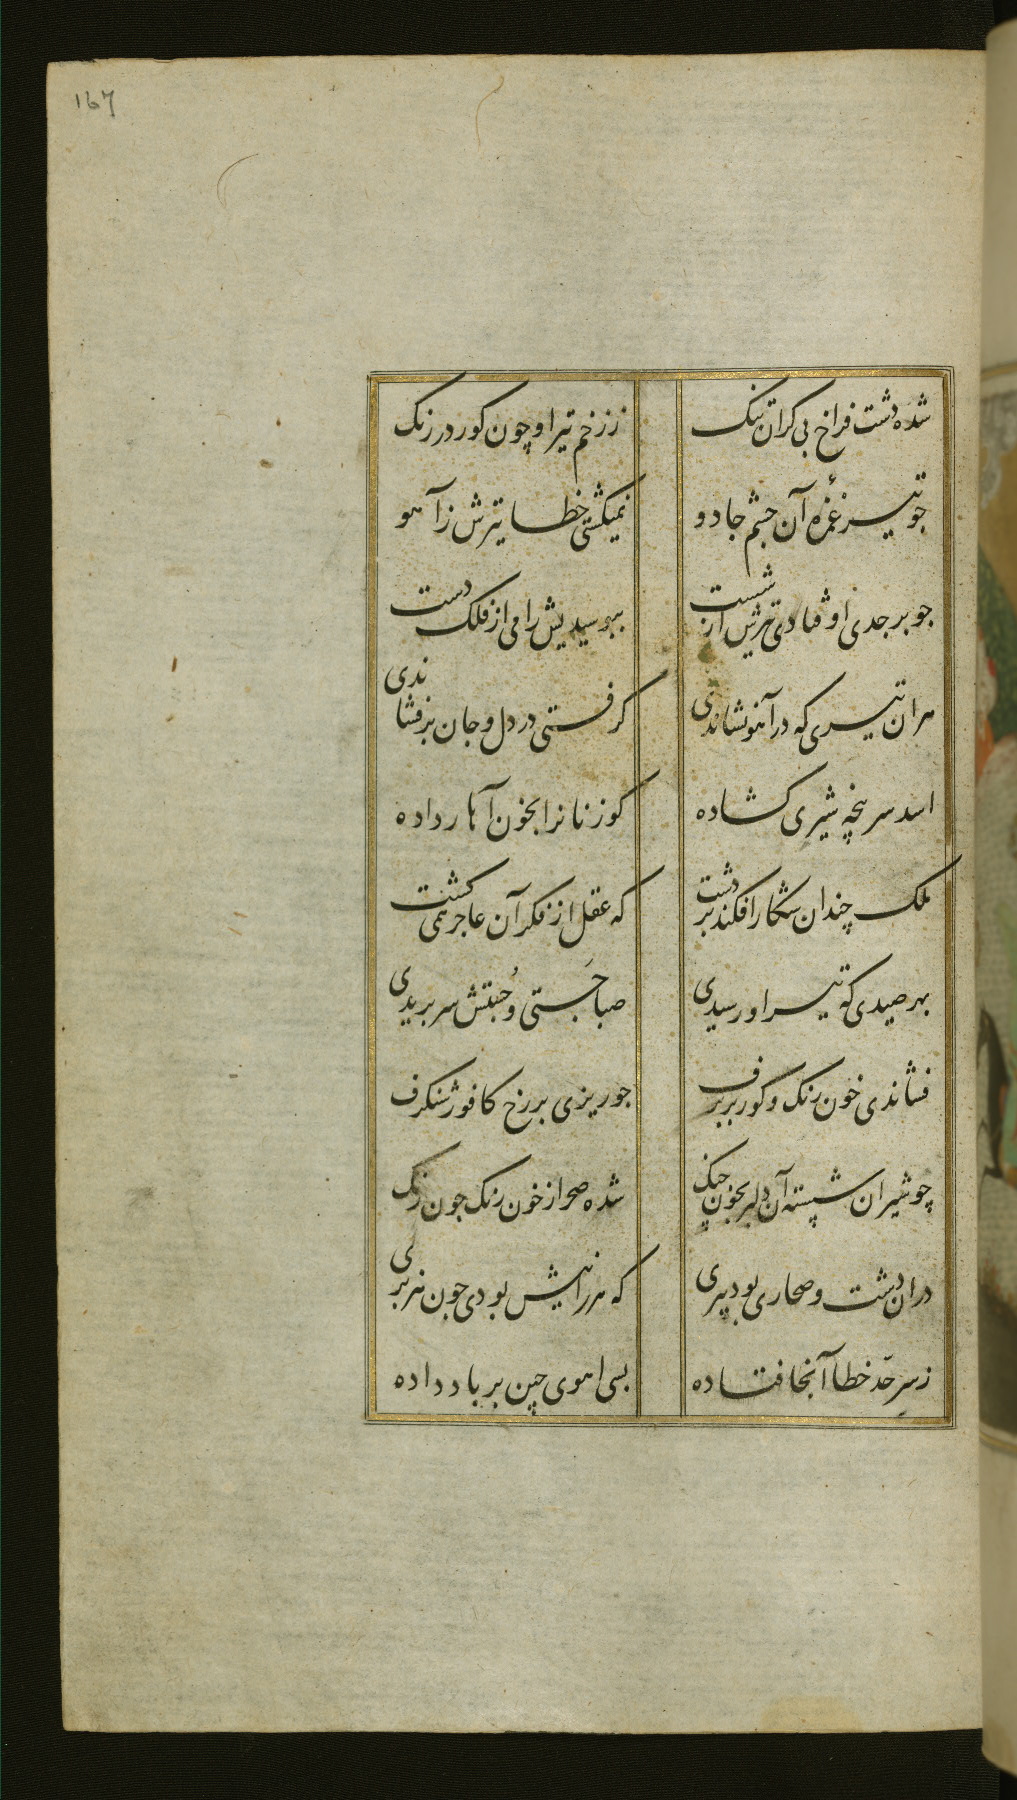 167
شده دشت فراخ بی کران تنک
ز زخم تیر او چون کور در زنک
جو تیر غمزهٔ آن جشم جادو
نمیکشتی خطا تیرش ز آهو
جو بر جدی او فتادی تیرش از شست
ببوسیدیش رامی از فلک دست
هران تیری که در آهو نشاندی
کرفتی در دل و جان بر فشاندی
اسد سر پنجه شیری کشاده
کوزنانرا بخون آهار داده
ملک چندان شکار افکند بر دشت
که عقل از فکر آن عاجز همی کشت
بهر صیدی که تیر او رسیدی
صبا جستی و جبتش سر بریدی
فشاندی خون رنک و کور بر برف
جو ریزی بر رخ کافور شنکرف
چو شیران شسته آن دلبر بخون چنک
شده صحرا ز خون رنک جون رنک
دران دشت و صحاری بود ببری
که هر رانیش بودی جون هزبری
ز سر حد خطا آنجا فتاده
بسی اهوی چین بر باد داده